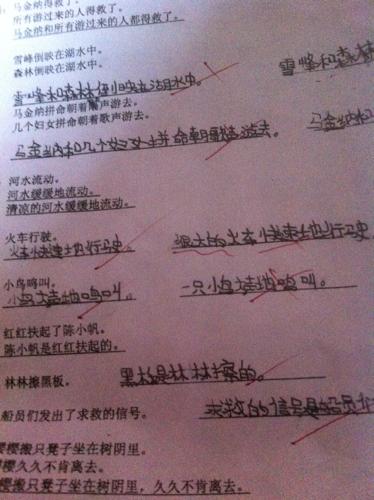 马金纳得救了。
所有游过来的人得救了。
马金纳和所有游过来的人都得救了。
雪峰倒映在湖水中。
森林倒映在湖水中。
雪峰和森林倒映在湖水中。 雪峰和森林
马金纳拼命朝着歌声游去。
几个妇女拼命朝着歌声游去。
马金纳和几个妇女拼命朝着歌声游去。 马金纳和
河水流动。
河水缓缓地流动。
清凉的河水缓缓地流动。
火车行驶。
火车快速地行驶。 很大的火车快速地行驶
小鸟鸣叫。
小鸟 地鸣叫。 一只小鸟 地鸣叫。
红红扶起了陈小帆。
陈小帆是红红扶起的。
林林擦黑板。 黑板是林林擦的。
船员们发出了求救的信号。 求救的信号是船员
樱樱搬只凳子坐在树阴里。
樱久久不肯离去。
樱樱搬只凳子坐在树阴里，久久不肯离去。